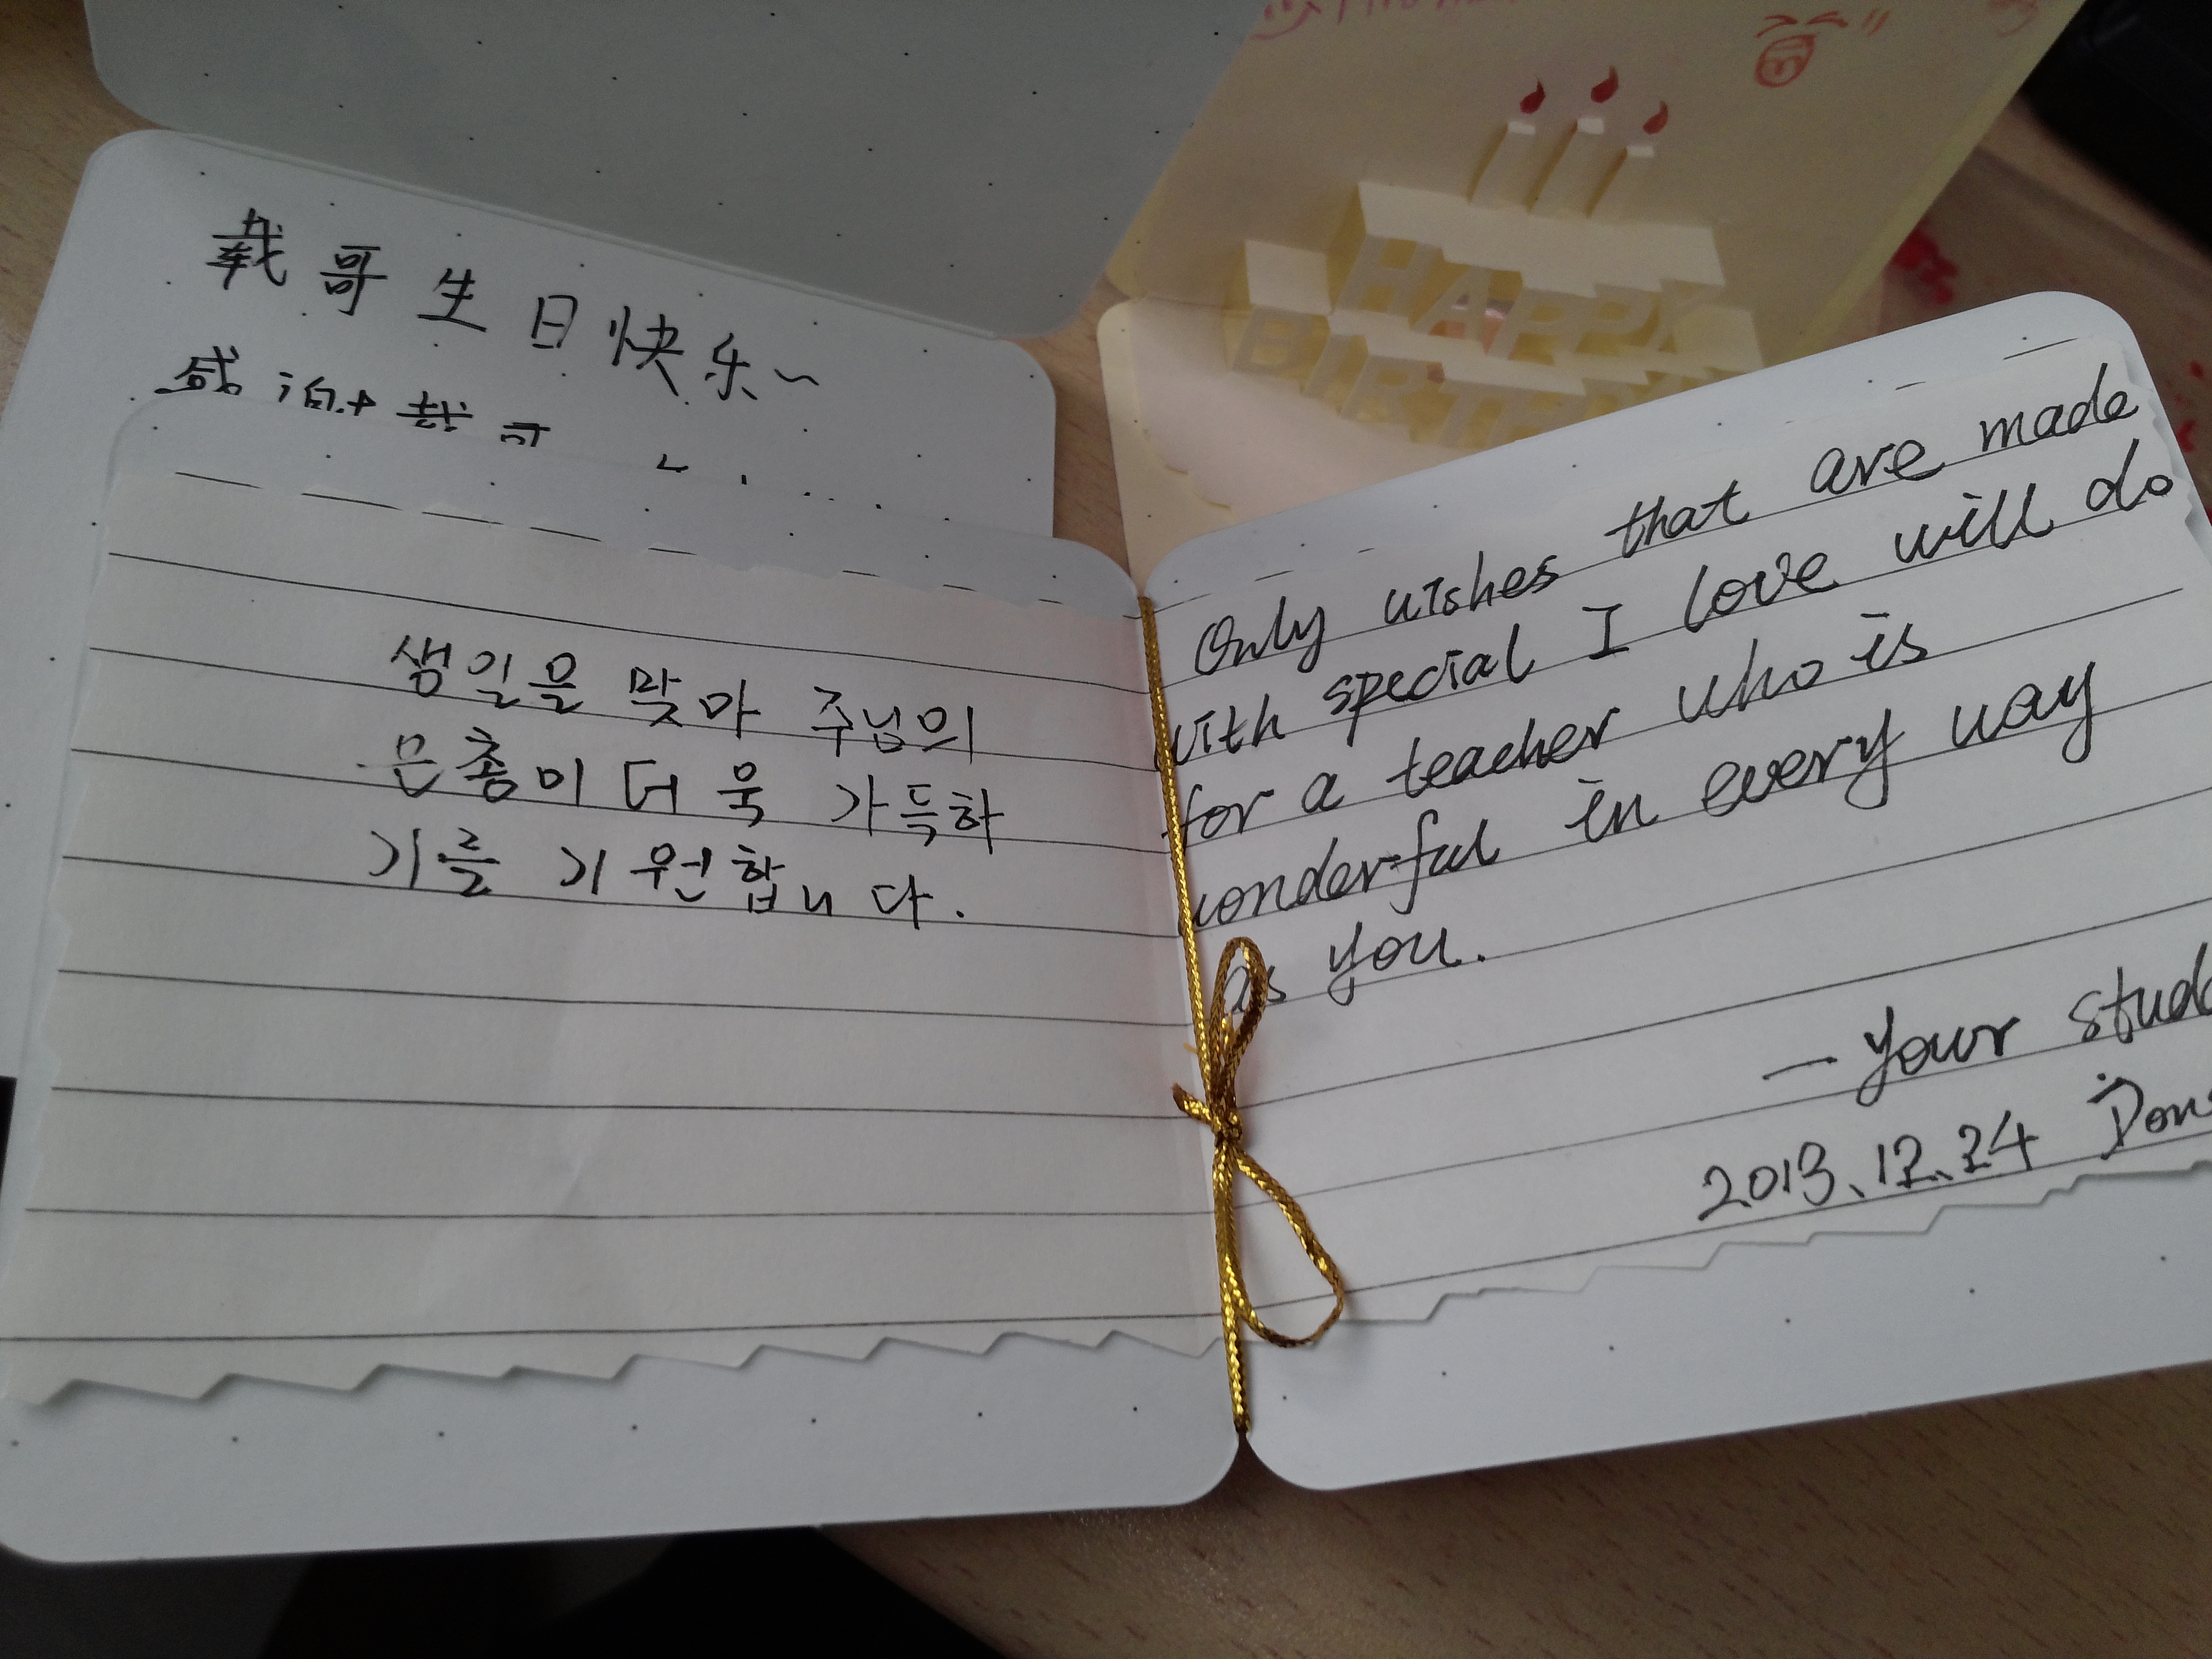 载哥生日快乐~
HAPPY
生일을 맞아 주님의
은총이 더욱 가득하
기를 기원합니다.
Only wishes that are made
with special I love will do
for a teacher who is
wonderful in every way
as you.
— Your
2013.12.24